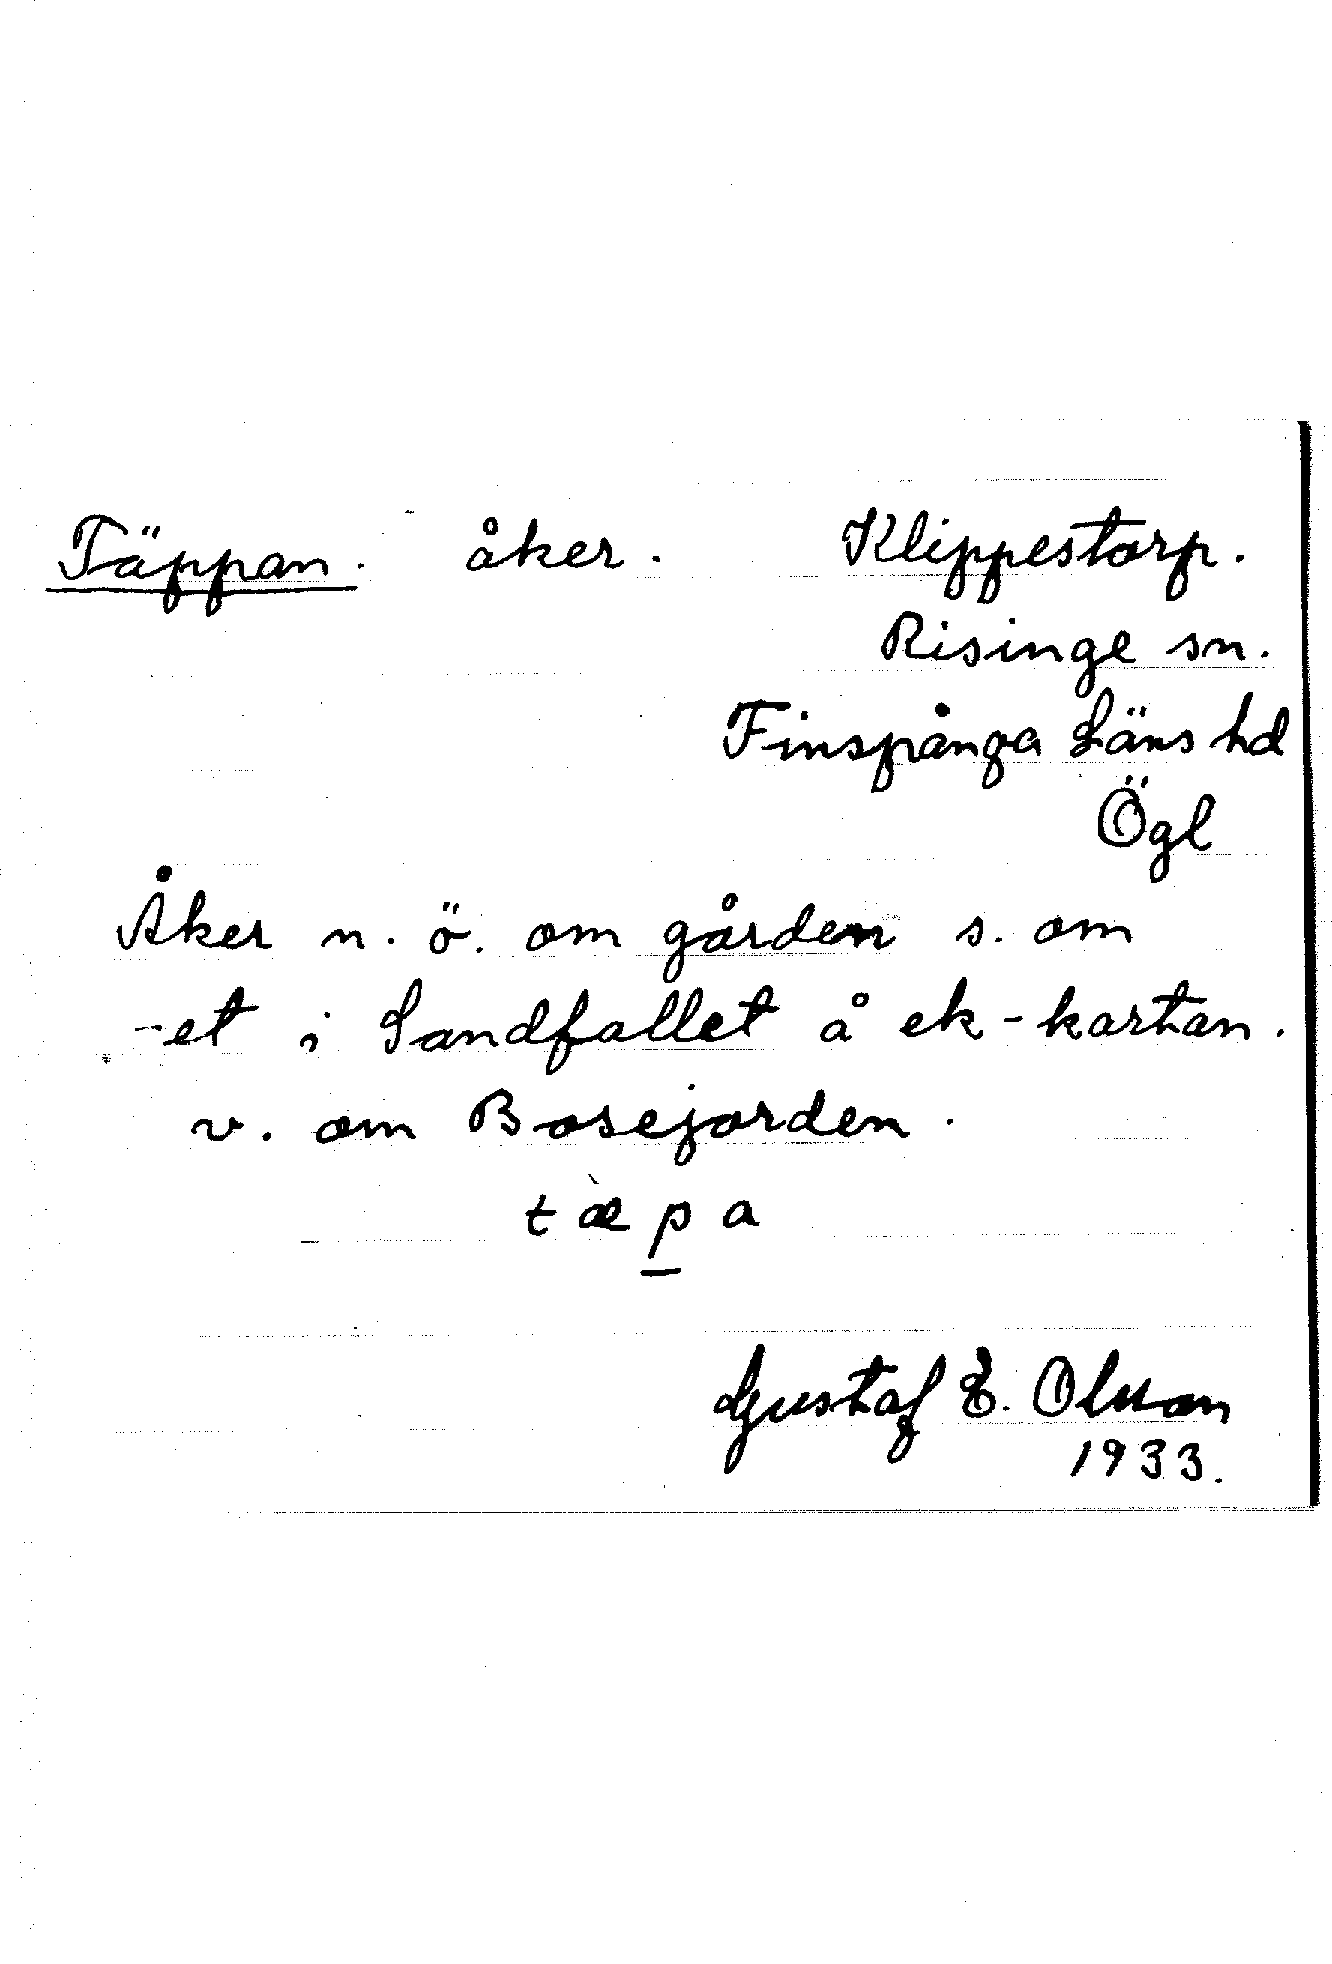 Täppan. åker. Klippestorp.
Risinge sn.
Finspånga Läns hd
Ögl
Åker n. ö. om gården s. om
-et i Sandfallet å ek-kartan.
v. om Bosejorden.
tæ̀p̲a
Gustaf E. Olsson
1933.